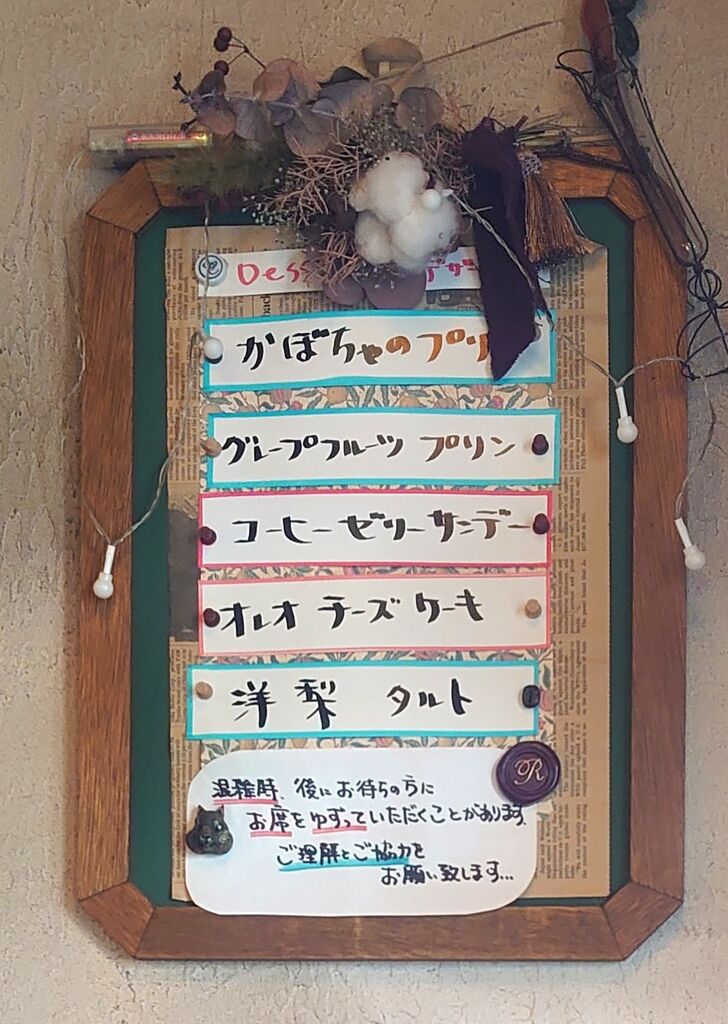 Dess デザ
かぼちゃのプリ
グレープフルーツ プリン
コーヒーゼリーサンデー
オレオ チーズ ケーキ
洋梨 タルト
R
混雑時、後にお待ちの方に
お席をゆずっていただくことがあります。
ご理解とご協力を
お願い致します...